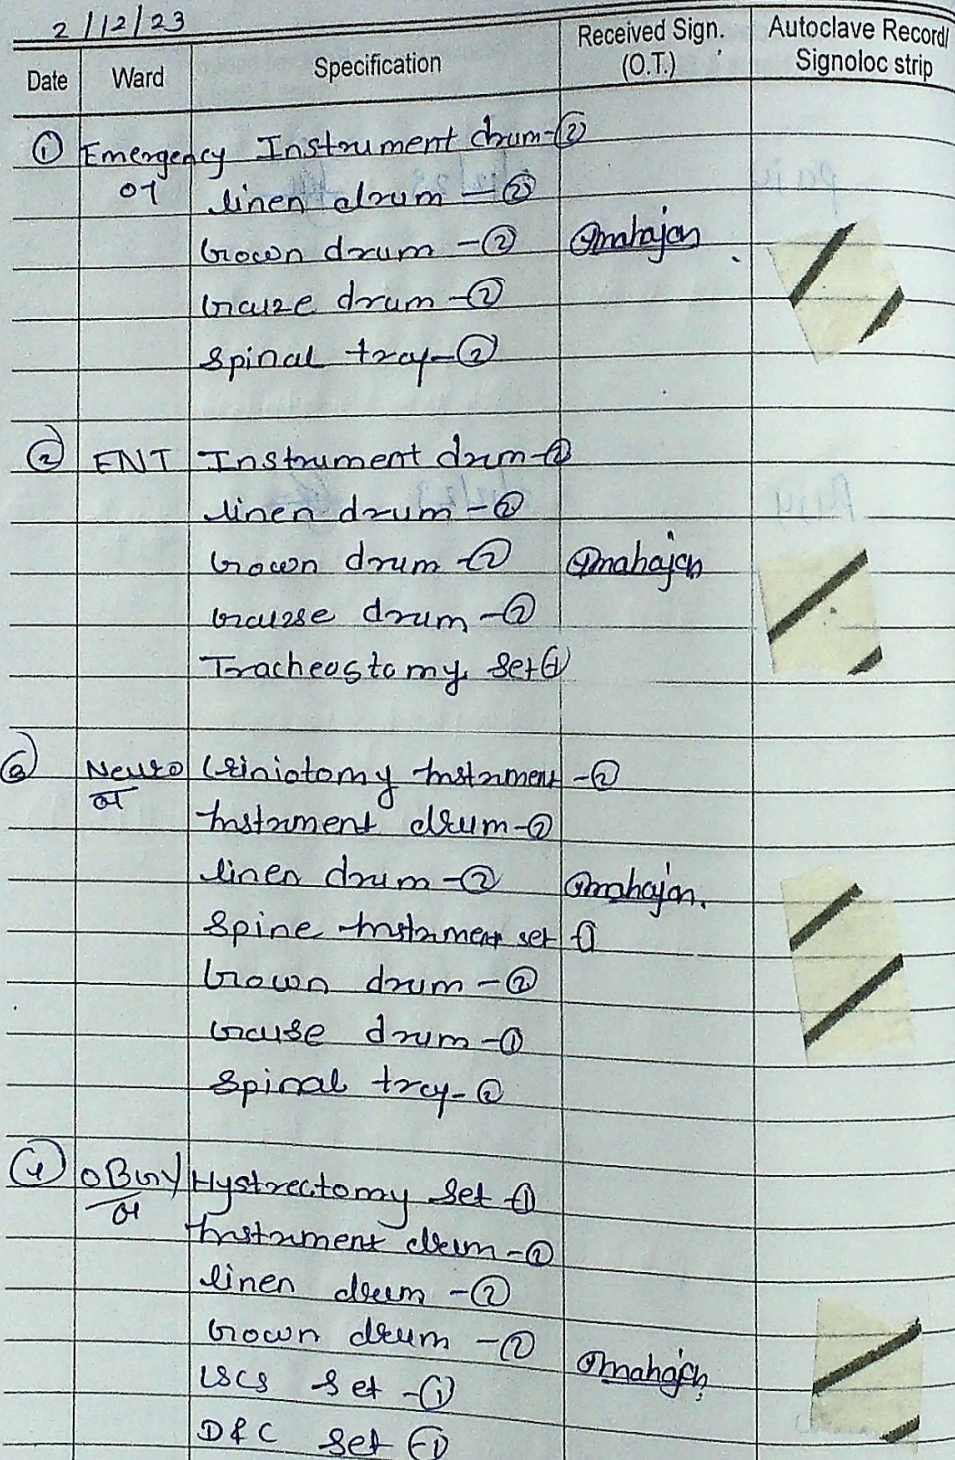 2/12/23
Date Ward Specification Received Sign. (O.T.) Autoclave Record/ Signoloc strip
① Emergency OT Instrument drum-②
linen drum-②
Gown drum-② Mahajan
Gauze drum-②
Spinal tray-②
② ENT Instrument drum-②
linen drum-②
Gown drum-② Mahajan
Gauzse drum-②
Tracheostomy Set-①
③ Neuro OT Criniotomy Instrument-②
Instrument drum-②
linen drum-② Mahajan.
Spine Instrument set-①
Gown drum-②
Gause drum-①
Spinal tray-②
④ OBGY OT Hystrectomy Set-①
Instrument drum-②
linen drum-②
Gown drum-② Mahajan
LSCS Set-①
D&C Set-①